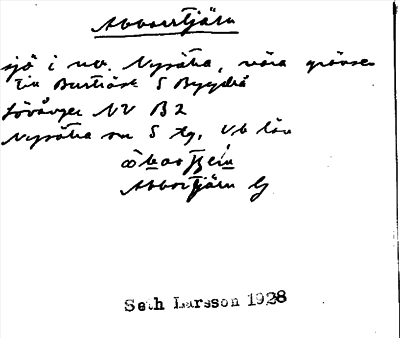 Abborrtjärn
sjö i nv. Nysätra, nära gränsen
till Burträsk S Bygdeå
Lövånger NV B 2
Nysätra sn S tg, Vb län
Abborrtjärn G
Seth Larsson 1928